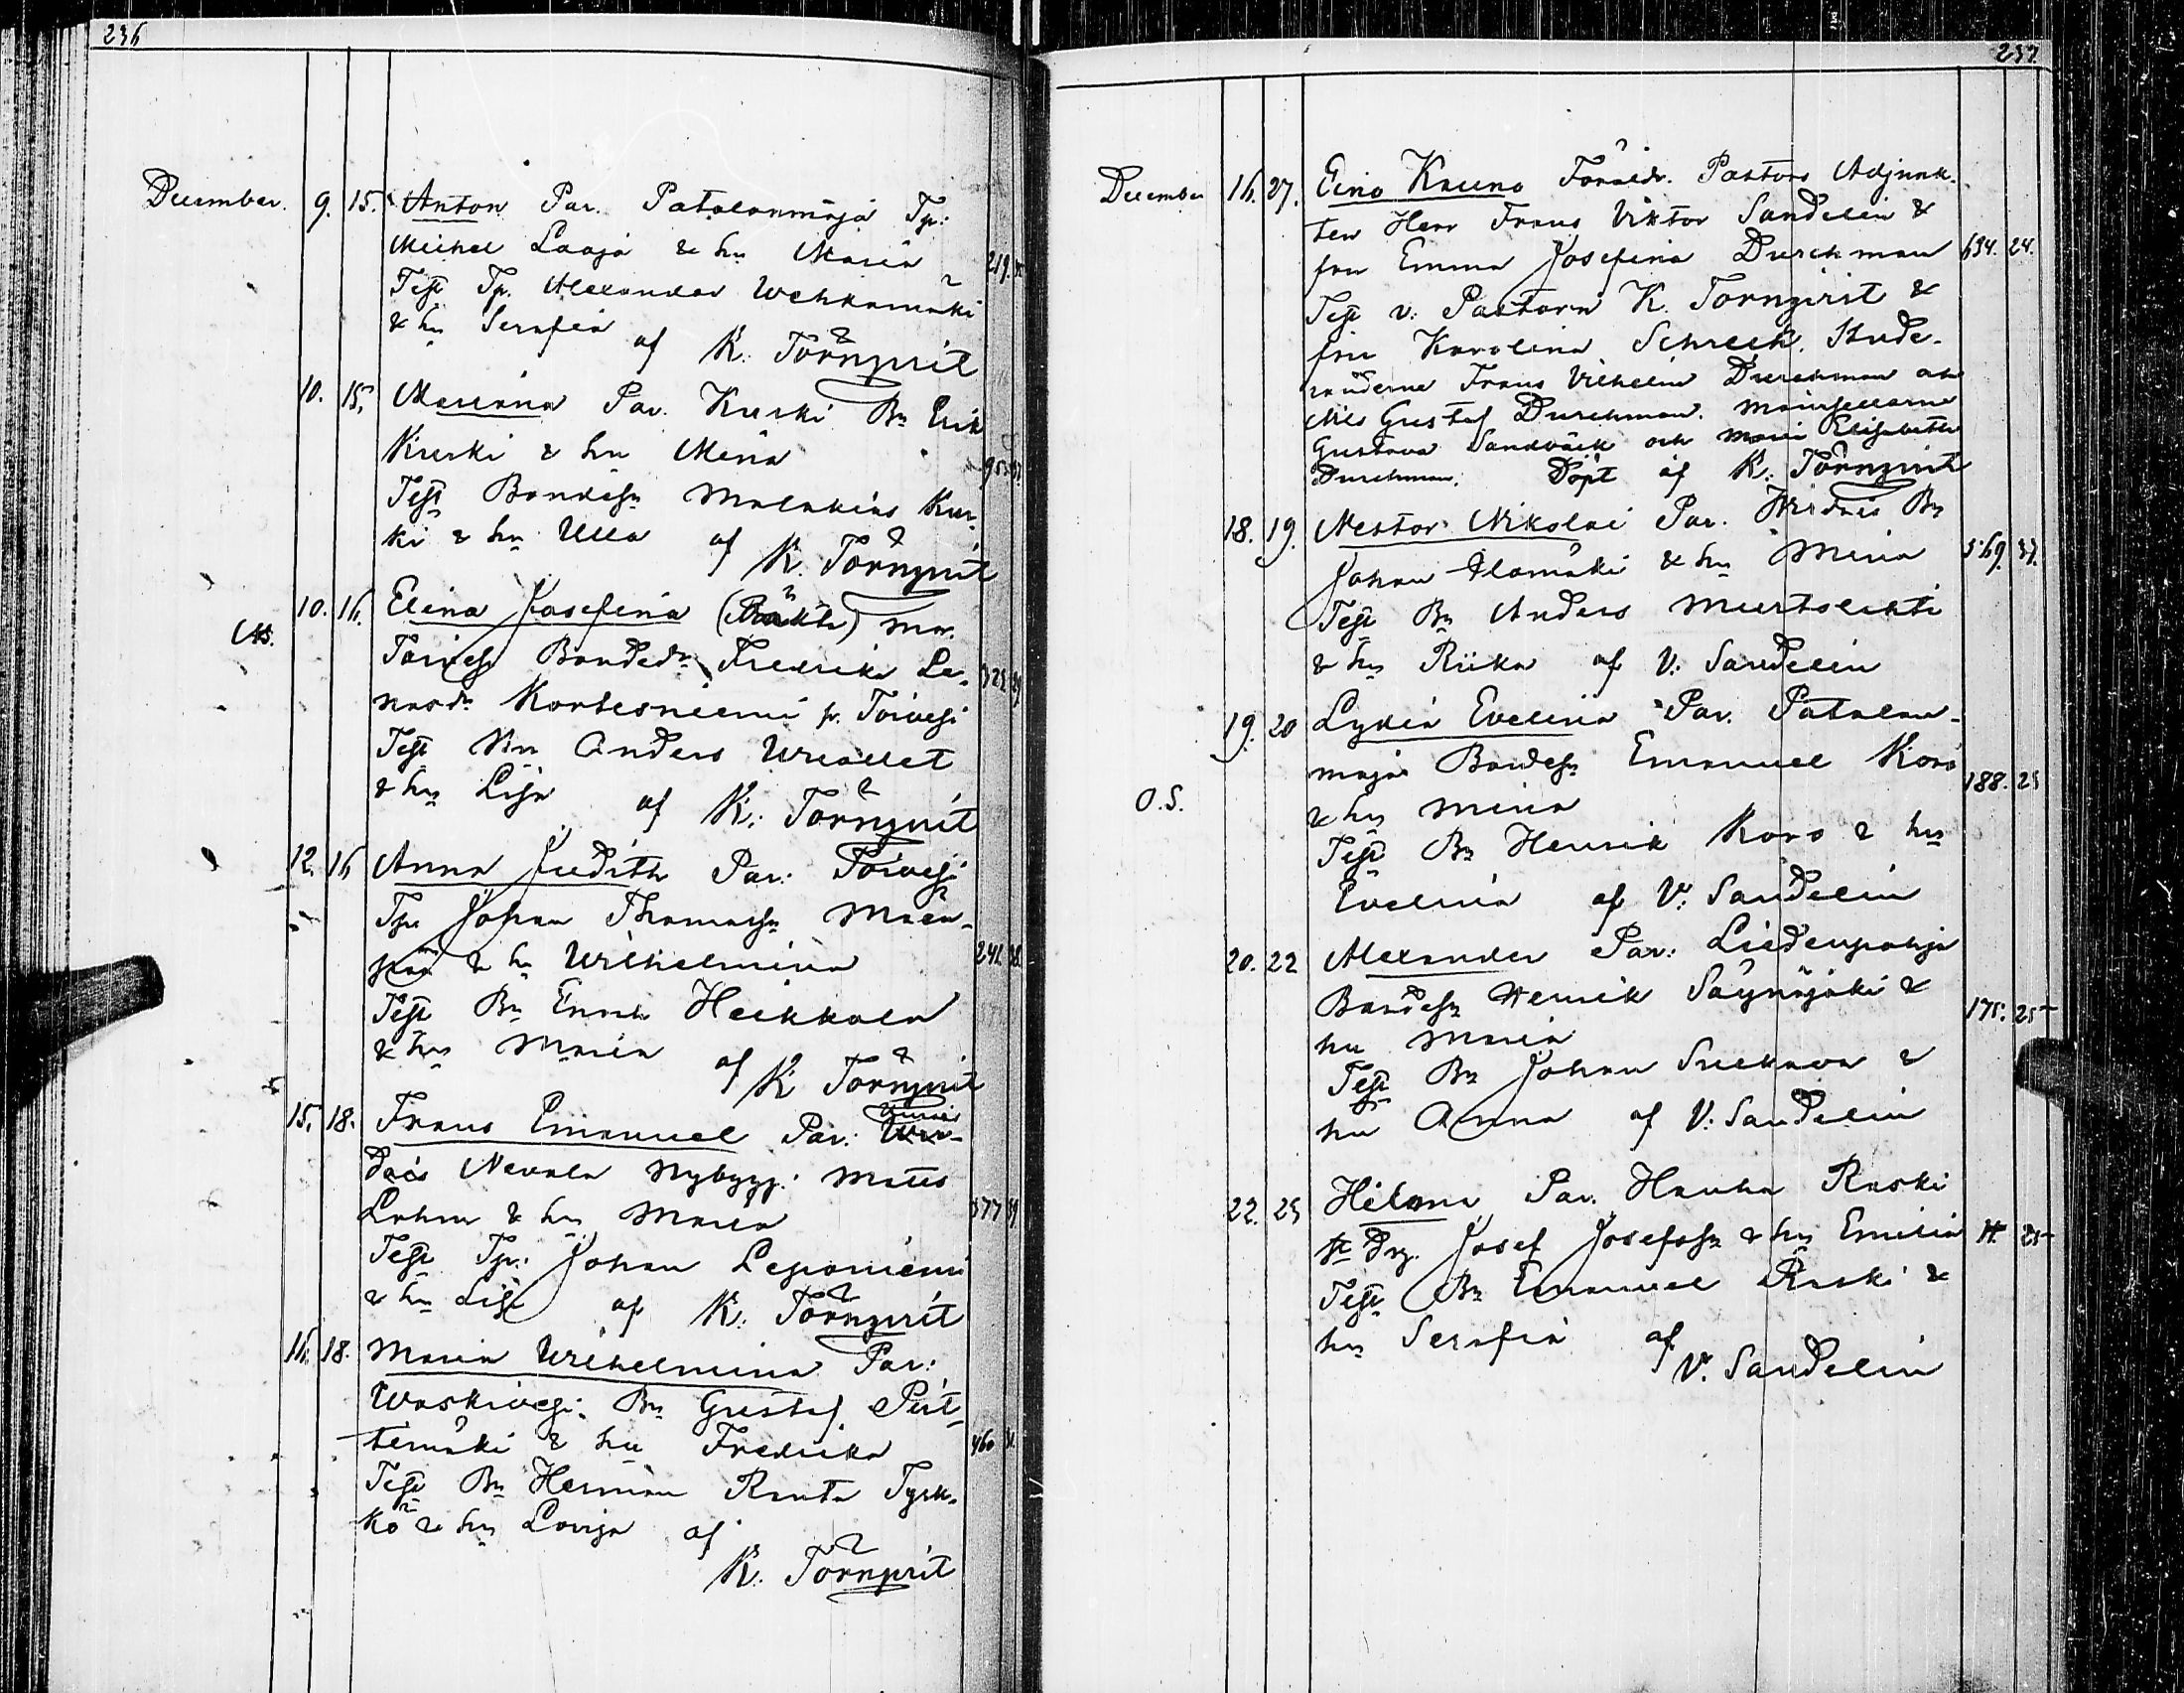 236
December. 9. 15. Anton Par. Patalanmaja Tp:
Michel Laaja & hu Maria 219.
Test Tp. Alexander Wehkamäki
& hu Serafia af K. Törnqvist
10. 15. Mariana Par. Kurki Bn Erik
Kurki & hu Maria
Test Bondesn Malakias Kur-
ki & hu Ulla af K. Törnqvist
10. 16. Elina Josefina (Oäkta) Mor.
Toivesi Bondedr Fredrika Le-
nasdr Kortesniemi fr. Toivesi
Test Bn Anders
& hu Lisa af K. Törnqvist
12. 16 Anna Judith Par: Toivesi
Tp. Johan Thomassn Mäen-
pää & hu Wilhelmina 242
Test Bn Enoch Heikkola
& hu Maria af K Törnqvist
15. 18. Frans Emanuel Par: Wir-
dois Nevala Nybygg: Matts
Lahm & hu Maria 377
Test Tp: Johan Leponiemi
& hu Lisa af K. Törnqvist
16. 18. Maria Wilhelmina Par:
Waskivesi. Bn Gustaf Pert-
temäki & hu Fredrika 460
Test Bn Herman Ranta Tyrk-
kö & hu Lovisa af
K. Törnqvist
237.
December 16. 27. Eino Kauno Föräldr. Pastors Adjunk-
ten Herr Frans Viktor Sandelin &
fru Emma Josefina Durchman 694. 24.
Test v: Pastorn K. Törnqvist &
fru Karolina Schreck. Stude-
randerne Frans Vilhelm Durchman och
Nils Gustaf Durchman. Mamsellerna
Gustava Sandbäck och Maria Elisabeth
Durchman. Döpt af K: Törnqvist
18. 19. Nestor Nikolai Par. Wirdois Bn
Johan Alamäki & hu Maria 569. 37.
Test Bn Anders Murtolahti
& hu Riika af V. Sandelin
19. 20 Lydia Evelina Par. Patalan-
maja Bondesn Emanuel Koro 188. 25
O.S. & hu Maria
Test Bn Henrik Koro & hu
Evelina af V. Sandelin
20. 22 Alexander Par: Liedenpohja
Bondesn Henrik Säynäjäki & 175. 25
hu Maria
Test Bn Johan &
hu Anna af V. Sandelin
22. 25 Hilma Par. Hauha Raski
st Drg. Josef Josefssn & hu Emilia 25
Test Bn Emanuel Raski &
hu Serafia af
V. Sandelin